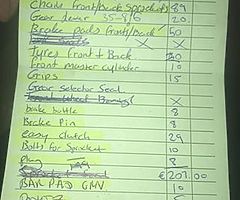 Chain front/back Sprockets 89
Gear lever 35-8/6 20
Brake pads front/back 60
X X
Tyres Front + Back 30
Front master cylinder 10
Grips 15
Gear Selector Seal
brake bottle 8
Brake Pin 8
easy clutch 29
Bolts for Sprocket 10
Plug 8
€207.00
BAR PAD 10